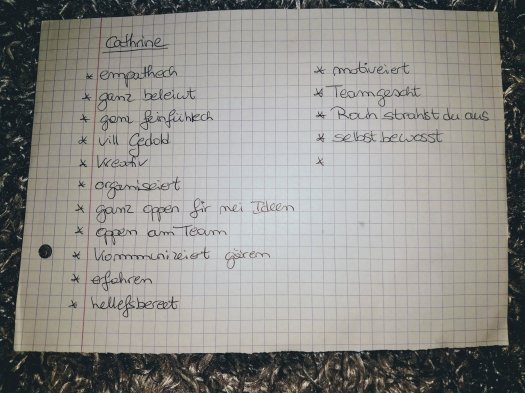 Cathrine
* empathech
* ganz beleiwt
* ganz feinfühlech
* vill Gedold
* kreativ
* organiséiert
* ganz oppen fir nei Ideen
* oppen am Team
* kommunizéiert gären
* erfahren
* hëllefsbereet
* motivéiert
* Teamgescht
* Roch strahlst du aus
* selbstbewosst
*